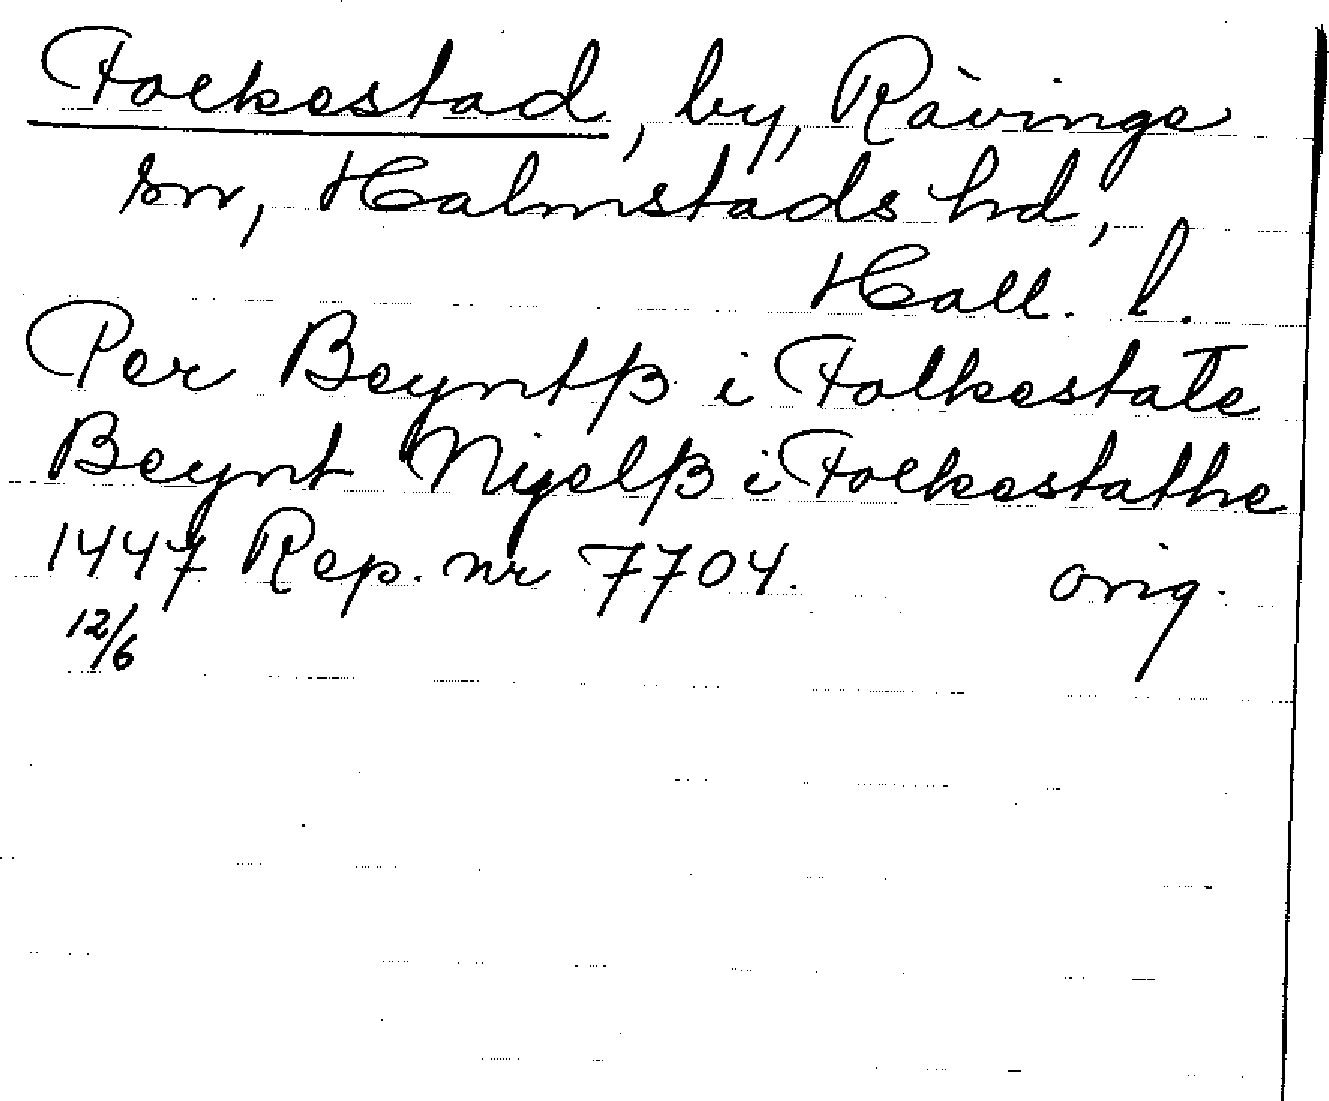 Folkestad, by, Råvinge
sn, Halmstads hd,
Hall. l.
Per Beyntß i Folkestate
Beynt Nigelß i Folkestathe
1447 Rep. nr 7704. orig.
12/6